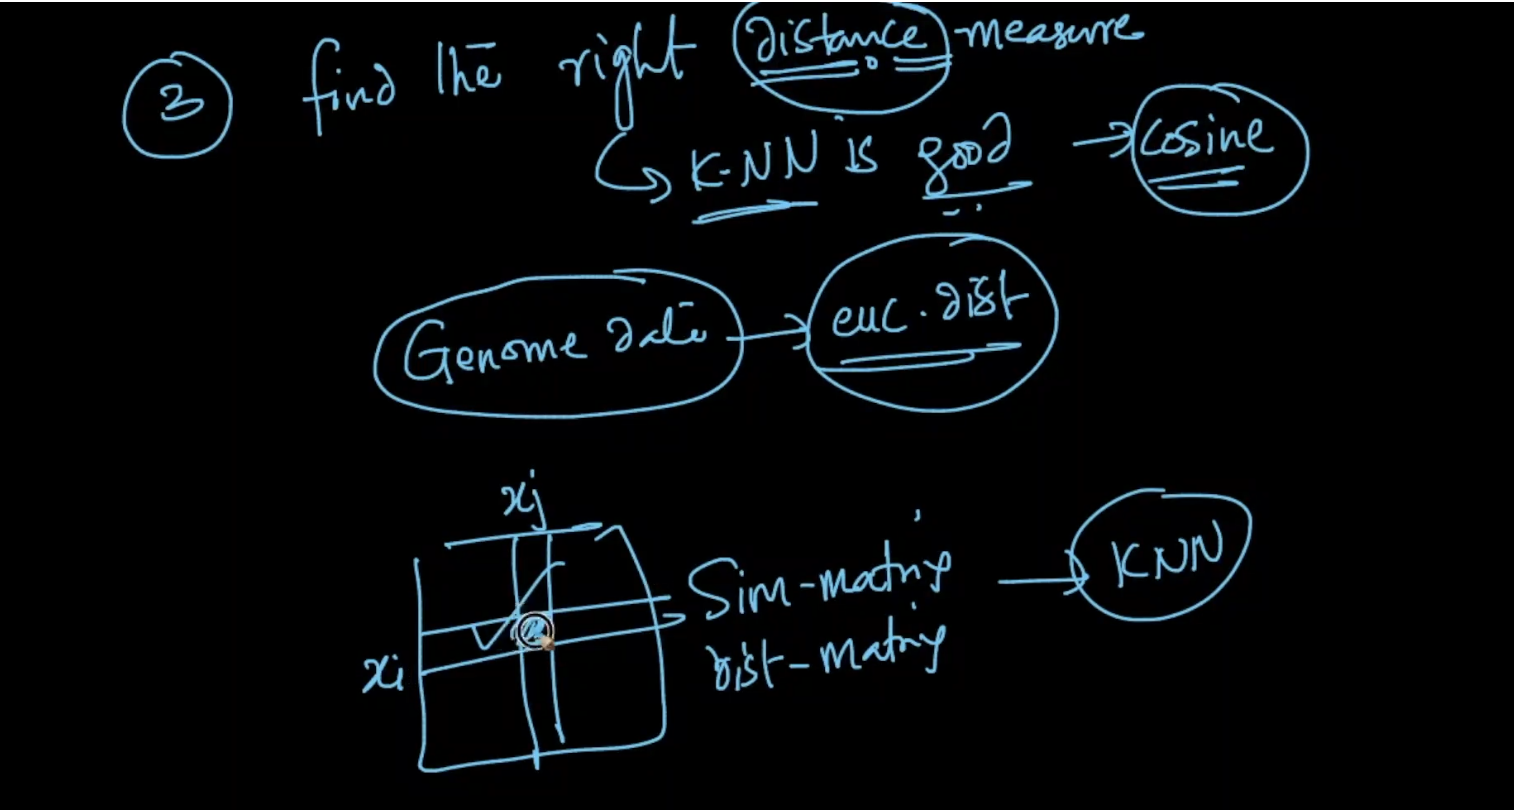 3 find the right distance measure
K-NN is good → cosine
Genome data → euc. dist
xj
Sim-matrix → KNN
xi
dist-matrix